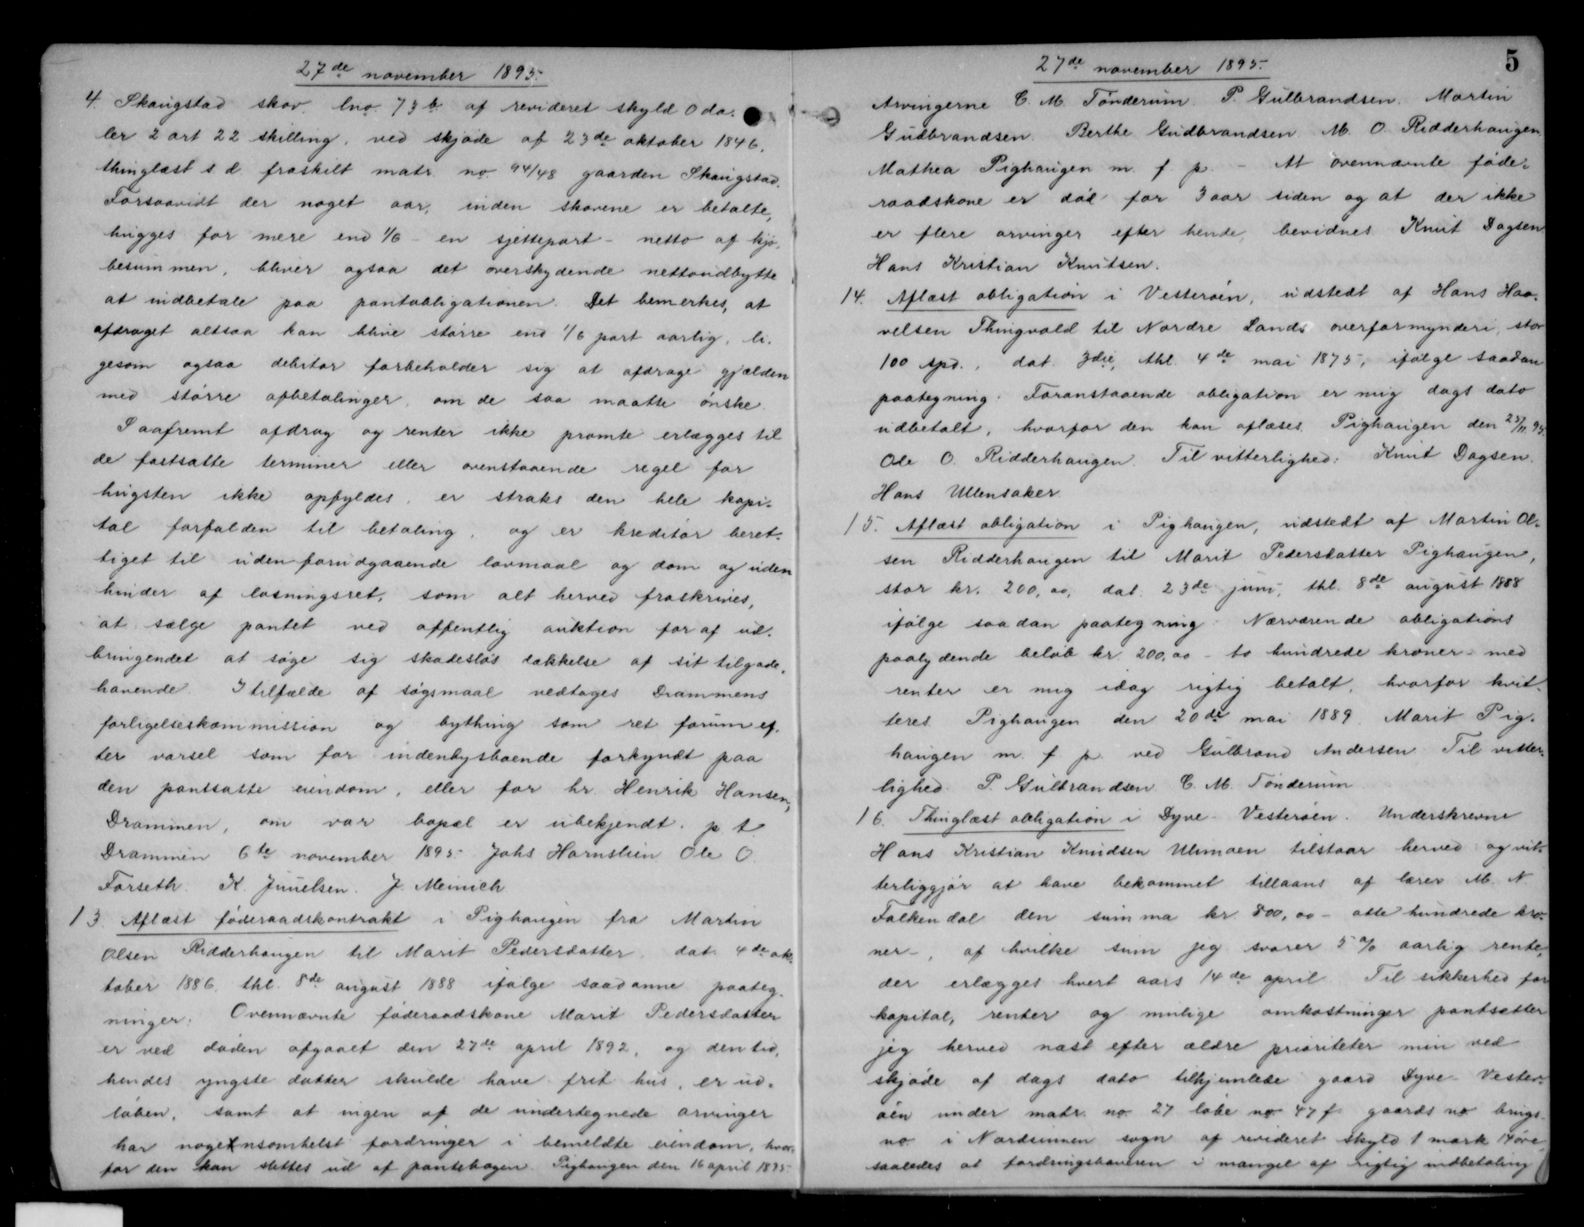 27de november 1895.
4. Skaugstad skov lno. 73 b. af revideret skyld 0 da-
ler 2 ort 22 skilling, ved skjøde af 23de oktober 1846,
thinglæst s d. fraskilt matr. no 94/48 gaarden Skaugstad.
Forsaavidt der noget aar, inden skovene er betalte,
hugges for mere end 1/6 - en sjettepart - netto af kjø-
besummen, bliver ogsaa det overskydende nettoudbytte
at indbetale paa pantobligationen. Det bemerkes, at
afdraget altsaa kan blive større end 1/6 part aarlig, li-
gesom ogsaa debitor forbeholder sig at afdrage gjælden
med større afbetalinger, om de saa maatte ønske.
Saafremt afdrag og renter ikke promte erlægges til
de fastsatte terminer eller ovenstaaende regel for
hugsten ikke opfyldes, er straks den hele kapi-
tal forfalden til betaling, og er kreditor beret-
tiget til uden forudgaaende lovmaal og dom og uden
hinder af løsningsret, som alt herved fraskrives,
at sælge pantet ved offentlig auktion for af ud-
bringendet at søge sig skadesløs dækkelse af sit tilgode-
havende. I tilfælde af søgsmaal vedtages Drammens
forligelseskommission og bything som ret forum ef-
ter varsel som for indenbysboende forkyndt paa
den pantsatte eiendom, eller for hr. Henrik Hansen,
Drammen, om vor bopæl er ubekjendt. p t
Drammen 6te november 1895. Johs Hornstein Ole O.
Forseth. K. Juuelsen. J. Meinich
13. Aflæst føderaadskontrakt i Pighaugen fra Martin
Olsen Ridderhaugen til Marit Pedersdatter, dat. 4de ok-
tober 1886, thl. 8de august 1888 ifølge saadanne paateg-
ninger: Ovennævnte føderaadskone Marit Pedersdatter
er ved døden afgaaet den 27de april 1892, og den tid,
hendes yngste datter skulde have frit hus, er ud-
løben, samt at ingen af de undertegnede arvinger
har nogensomhelst fordringer i bemeldte eiendom, hvor-
for den kan slettes ud af pantebogen. Pighaugen den 16 april 1895.
5
27de november 1895.
Arvingerne C. M. Tønderum. P. Gulbrandsen. Martin
Gudbrandsen. Berthe Gudbrandsen. M. O. Ridderhaugen
Mathea Pighaugen m. f. p. - At ovennævnte føde-
raadskone er død for 3 aar siden og at der ikke
er flere arvinger efter hende, bevidnes Knut Dagsen
Hans Kristian Knutsen.
14. Aflæst obligation i Vesterøen, udstedt af Hans Haa-
velsen Thingvold til Nordre Lands overformynderi, stor
100 spd., dat. 3die, thl. 4de mai 1875, ifølge saadan
paategning: Foranstaaende obligation er mig dags dato
udbetalt, hvorfor den kan aflæses. Pighaugen den 25/11 95
Ole O. Ridderhaugen. Til vitterlighed: Knut Dagsen.
Hans Ullensaker.
15. Aflæst obligation i Pighaugen, udstedt af Martin Ol-
sen Ridderhaugen til Marit Pedersdatter Pighaugen,
stor kr. 200,00, dat. 23de juni, thl. 8de august 1888
ifølge saadan paategning: Nærværende obligations
paalydende beløb kr 200,00 - to hundrede kroner - med
renter er mig idag rigtig betalt, hvorfor kvit-
teres. Pighaugen den 20de mai 1889. Marit Pig-
haugen m. f. p. ved Gulbrand Andersen. Til vitter-
lighed P. Gulbrandsen C. M. Tønderum
16. Thinglæst obligation i Dyve-Vesterøen. Underskrevne
Hans Kristian Knudsen Ulimoen tilstaar herved og vit-
terliggjør at have bekommet tillaans af lærer M. N.
Falkendal den summa kr. 800,00 - otte hundrede kro-
ner -, af hvilke sum jeg svarer 5 % aarlig rente,
der erlægges hvert aars 14de april. Til sikkerhed for
kapital, renter og mulige omkostninger pantsætter
jeg herved næst efter ældre prioriteter min ved
skjøde af dags dato tilhjemlede gaard Dyve-Vester-
øen under matr. no. 27 løbe no 47 f. gaards no brugs
no i Nordsinnen sogn af revideret skyld 1 mark 14 øre
saaledes at fordringshaveren i mangel af rigtig indbetaling